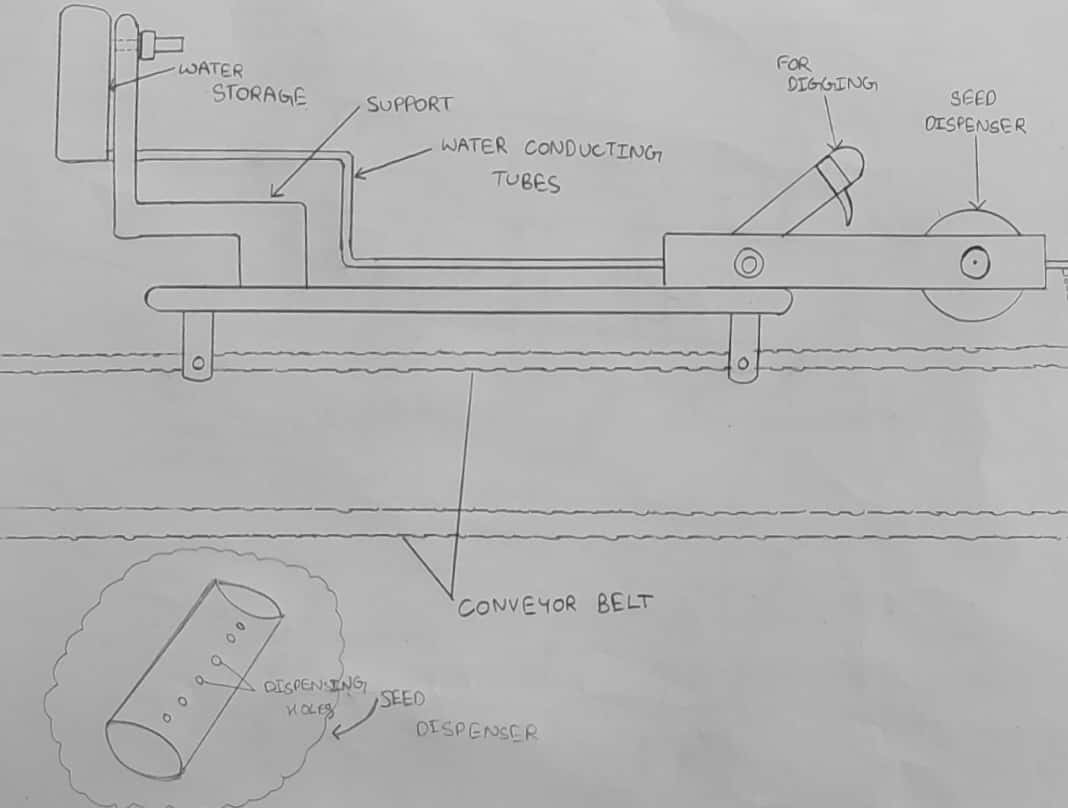 WATER
STORAGE
SUPPORT
WATER CONDUCTING
TUBES
FOR
DIGGING
SEED
DISPENSER
CONVEYOR BELT
DISPENSING
HOLES
SEED
DISPENSER